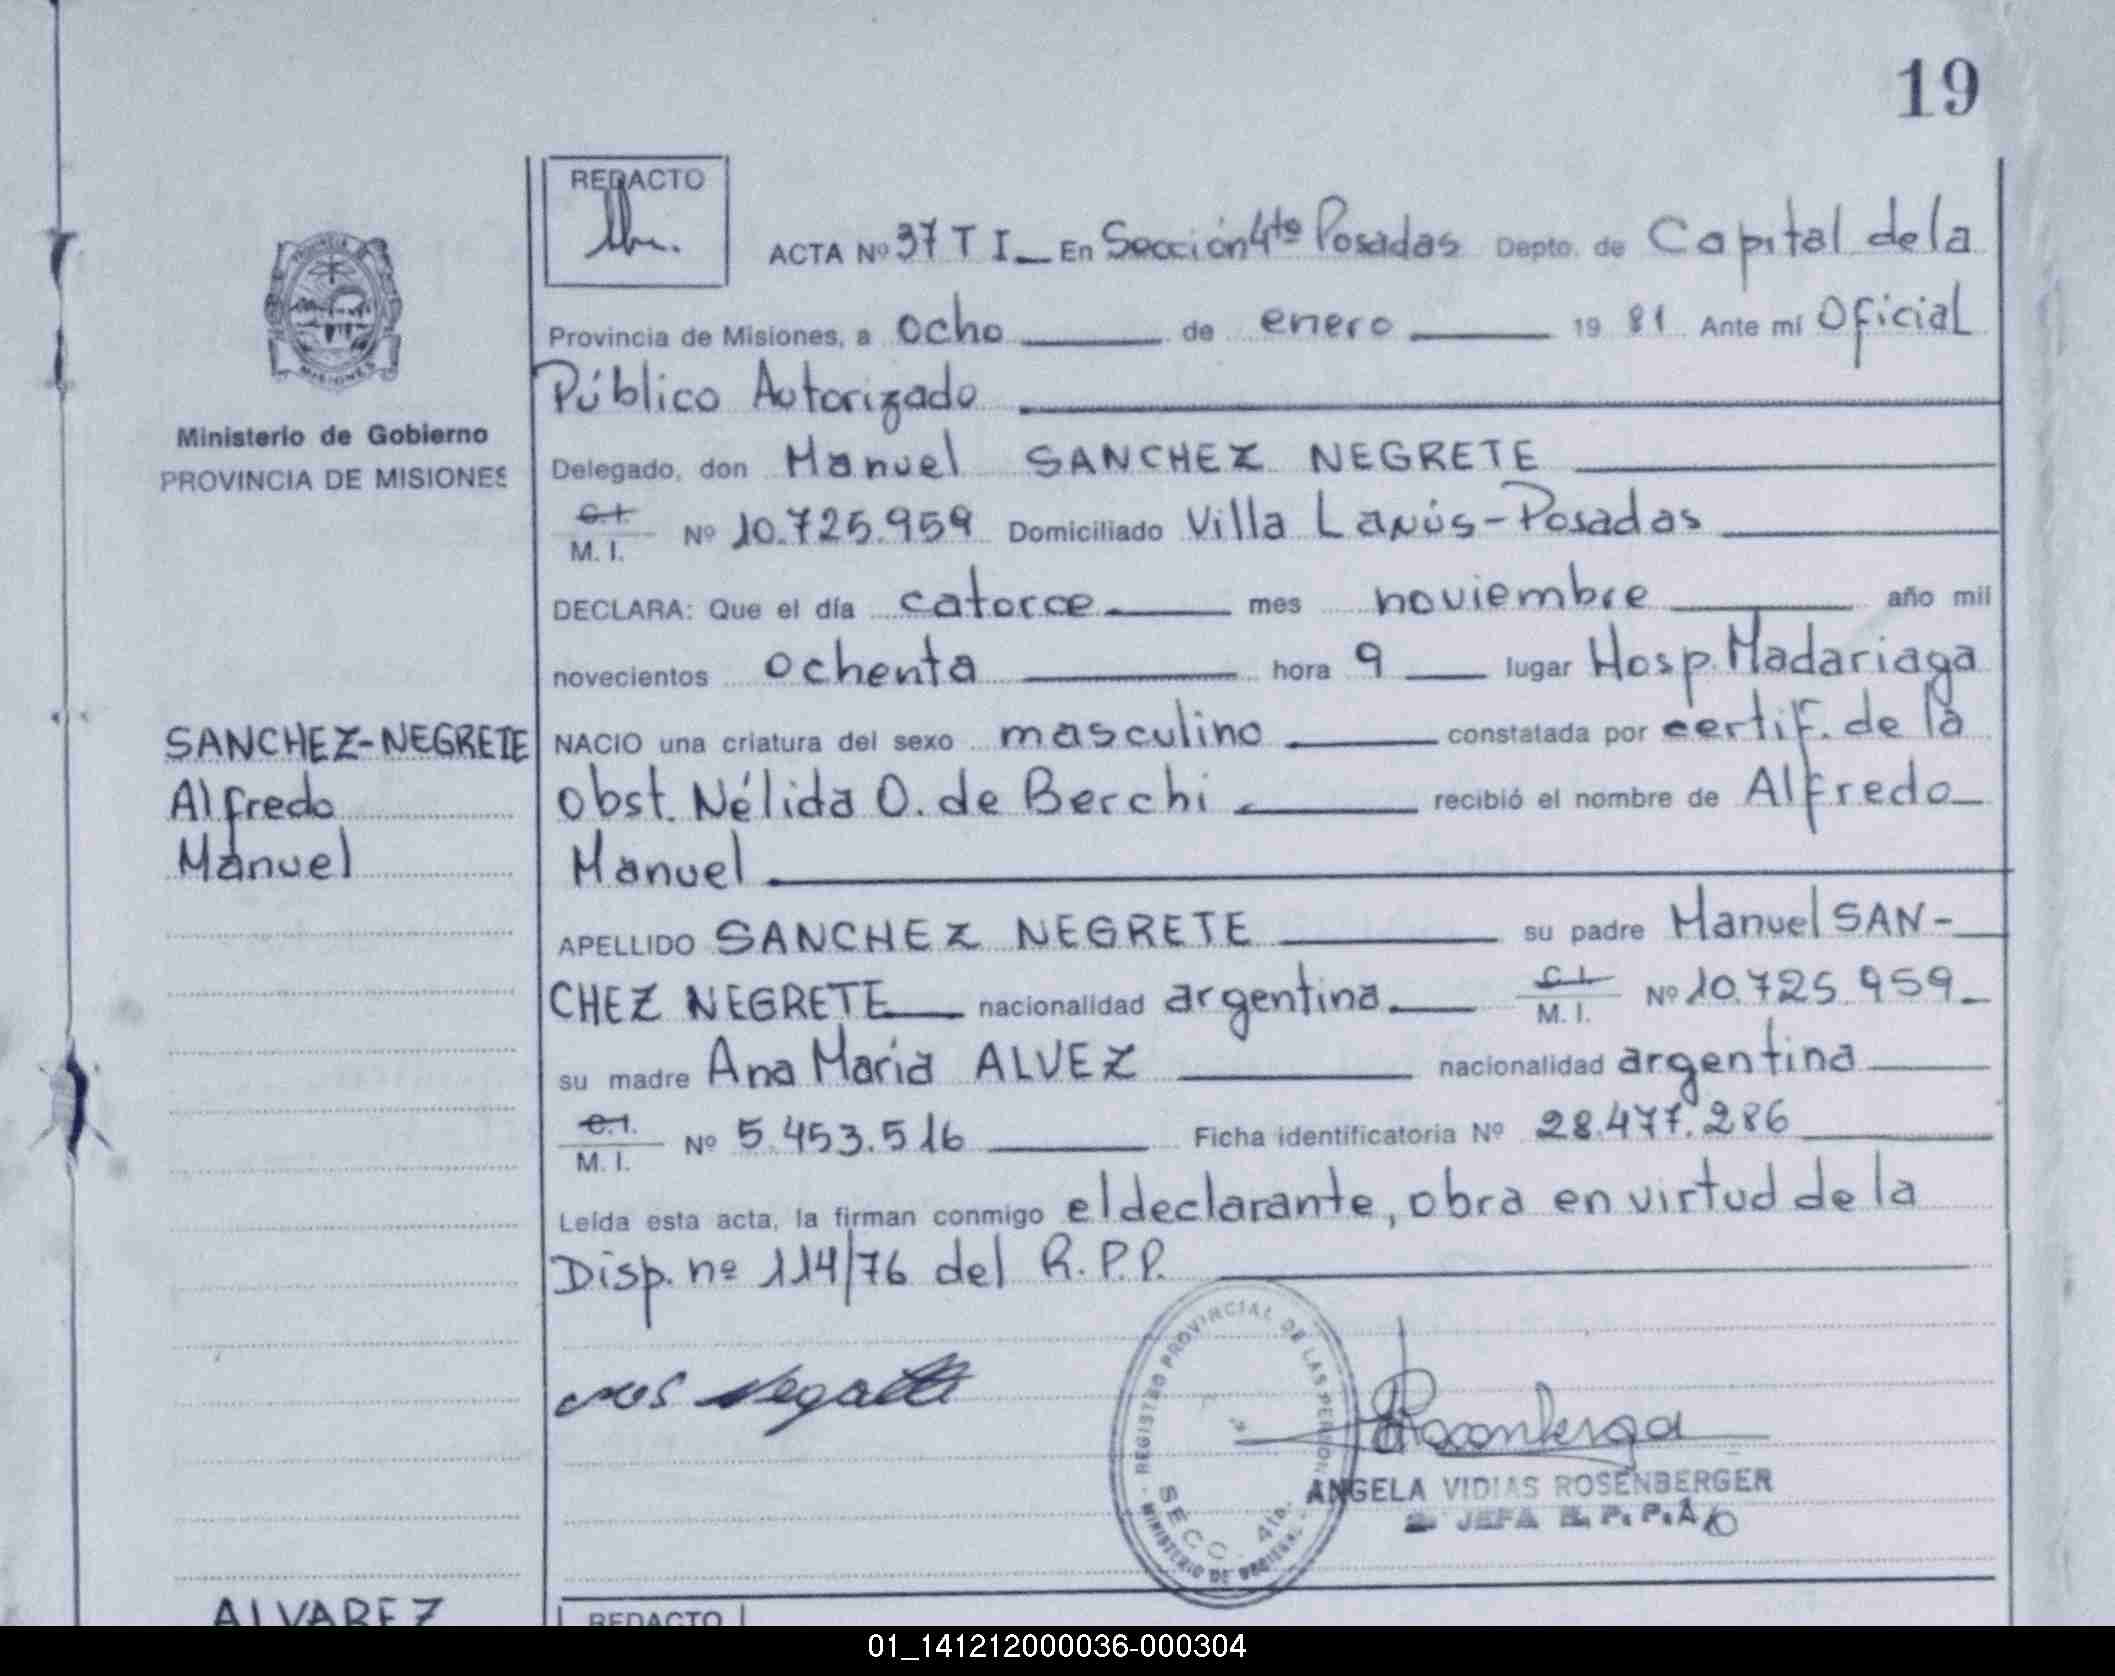 19
REDACTO
ACTA Nº 37 T I_ En Sección 4ta Posadas Depto. de Capital de la
Provincia de Misiones, a ocho de enero 19 81 Ante mí Oficial
Público Autorizado
Ministerio de Gobierno
PROVINCIA DE MISIONES
Delegado, don Manuel SANCHEZ NEGRETE
C.I.
M. I. Nº 10.725.959 Domiciliado Villa Lanús-Posadas
DECLARA: Que el día catorce mes noviembre año mil
novecientos ochenta hora 9 lugar Hosp. Madariaga
SANCHEZ-NEGRETE
Alfredo
Manuel
NACIO una criatura del sexo masculino constatada por certif. de la
obst. Nélida O. de Berchi recibió el nombre de Alfredo
Manuel
APELLIDO SANCHEZ NEGRETE su padre Manuel SAN-
CHEZ NEGRETE nacionalidad argentina C.I.
M. I. Nº 10.725.959
su madre Ana Maria ALVEZ nacionalidad argentina
C.I.
M. I. Nº 5.453.516 Ficha identificatoria Nº 28.477.286
Leída esta acta, la firman conmigo el declarante, obra en virtud de la
Disp. nº 114/76 del R.P.P.
REGISTRO PROVINCIAL DE LAS PERSONAS
SECC. 4ta.
MINISTERIO DE GOBIERNO
ANGELA VIDIAS ROSENBERGER
JEFA R. P. P.
ALVAREZ
REDACTO
01_141212000036-000304